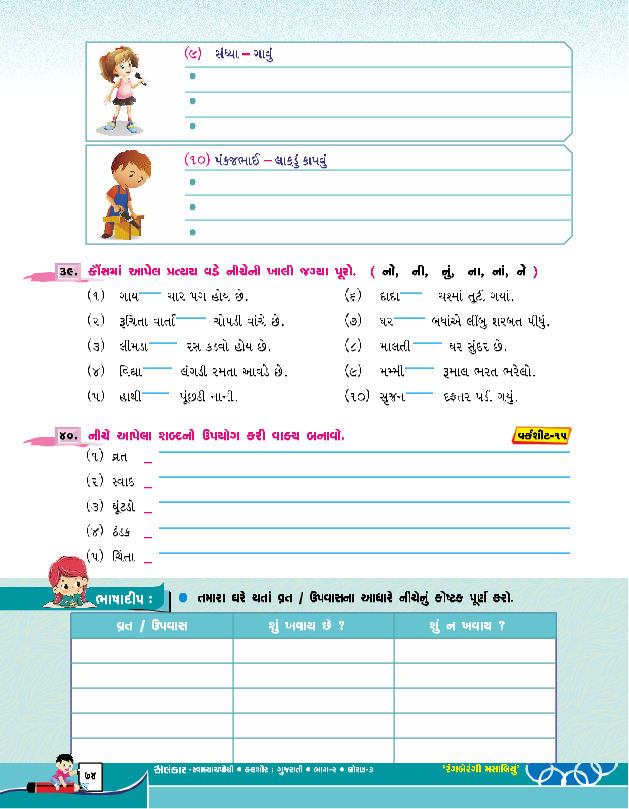 (૯) સંધ્યા – ગાવું
(૧૦) પંકજભાઈ – લાકડું કાપવું
૩૯. કૌંસમાં આપેલ પ્રત્યય વડે નીચેની ખાલી જગ્યા પૂરો. ( નો, ની, નું, ના, નાં, ને )
(૧) ગાય____ ચાર પગ હોય છે.
(૬) દાદા____ ચશ્માં તૂટી ગયાં.
(૨) રૂચિતા વાર્તા____ ચોપડી વાંચે છે.
(૭) ઘર____ બધાંએ લીંબુ શરબત પીધું.
(૩) લીમડા____ રસ કડવો હોય છે.
(૮) માલતી____ ઘર સુંદર છે.
(૪) વિદ્યા____ લંગડી રમતા આવડે છે.
(૯) મમ્મી____ રૂમાલ ભરત ભરેલો.
(૫) હાથી____ પૂંછડી નાની.
(૧૦) સુજન____ દફતર પડી ગયું.
૪૦. નીચે આપેલા શબ્દનો ઉપયોગ કરી વાક્ય બનાવો.
વર્કશીટ-૧૫
(૧) વ્રત _
(૨) સ્વાદ _
(૩) ઘૂંટડો _
(૪) ઠંડક _
(૫) ચિંતા _
ભાષાદીપ :
● તમારા ઘરે થતાં વ્રત / ઉપવાસના આધારે નીચેનું કોષ્ટક પૂર્ણ કરો.
વ્રત / ઉપવાસ
શું ખવાય છે ?
શું ન ખવાય ?
૭૪
અલંકાર - સ્વાધ્યાયપોથી ● કલશોર : ગુજરાતી ● ભાગ-૨ ● ધોરણ-૩
'રંગબેરંગી મસાલિયું'